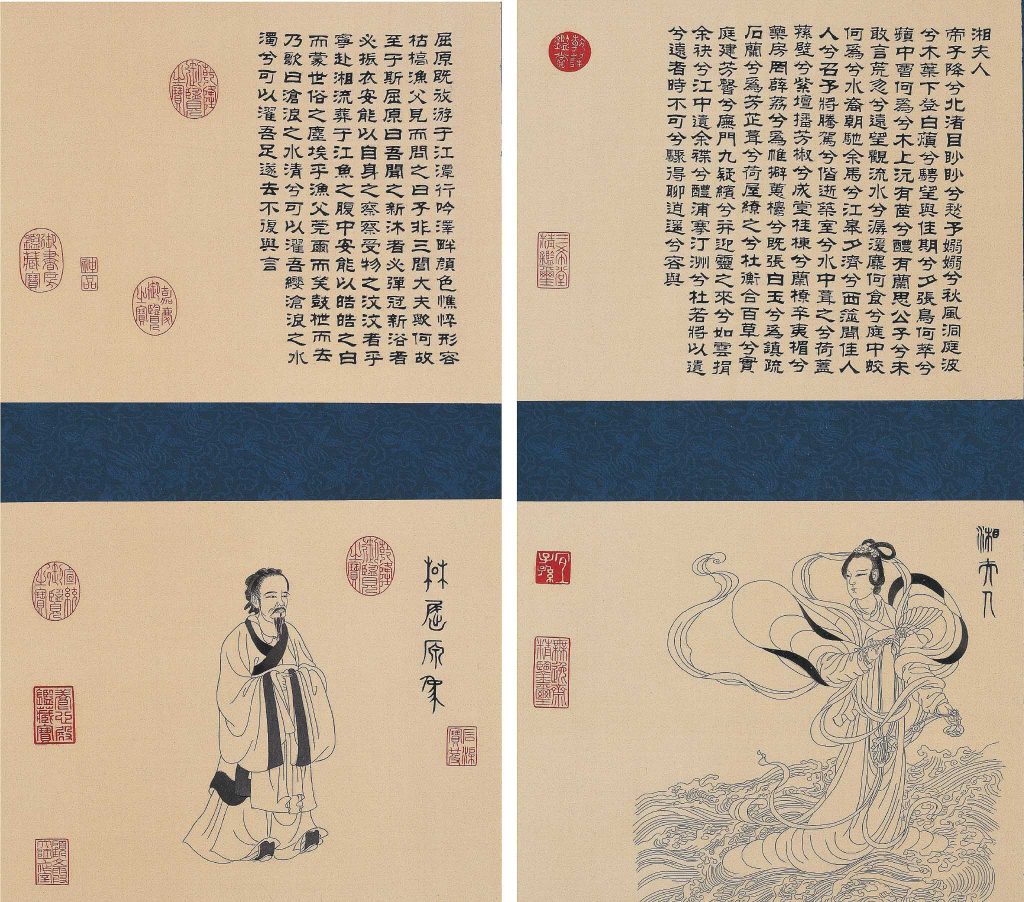 湘夫人
帝子降兮北渚目眇眇兮愁予嫋嫋兮秋風洞庭波
兮木葉下登白薠兮騁望與佳期兮夕張鳥何萃兮
蘋中罾何爲兮木上沅有茝兮醴有蘭思公子兮未
敢言荒忽兮遠望觀流水兮潺湲麋何食兮庭中蛟
何爲兮水裔朝馳余馬兮江皋夕濟兮西澨聞佳人
人兮召予將騰駕兮偕逝築室兮水中葺之兮荷蓋
蓀壁兮紫壇播芳椒兮成堂桂棟兮蘭橑辛夷楣兮
藥房罔薜荔兮爲帷擗蕙櫋兮既張白玉兮爲鎮疏
石蘭兮爲芳芷葺兮荷屋繚之兮杜衡合百草兮實
庭建芳馨兮廡門九疑繽兮并迎靈之來兮如雲捐
余袂兮江中遺余褋兮醴浦搴汀洲兮杜若將以遺
兮遠者時不可兮驟得聊逍遙兮容與
三希堂精鑑璽
屈原既放游于江潭行吟澤畔顏色憔悴形容
枯槁漁父見而問之曰子非三閭大夫歟何故
至于斯屈原曰吾聞之新沐者必彈冠新浴者
必振衣安能以自身之察察受物之汶汶者乎
寧赴湘流葬于江魚之腹中安能以皓皓之白
而蒙世俗之塵埃乎漁父莞爾而笑鼓枻而去
乃歌曰滄浪之水清兮可以濯吾纓滄浪之水
濁兮可以濯吾足遂去不復與言
乾隆御覽之寶
嘉慶御覽之寶
神品
御書房鑑藏寶
湘夫人
宜子孫
無逸齋精鑑璽
屈原象
石渠寶笈
乾隆御覽之寶
宣統御覽之寶
養心殿鑑藏寶